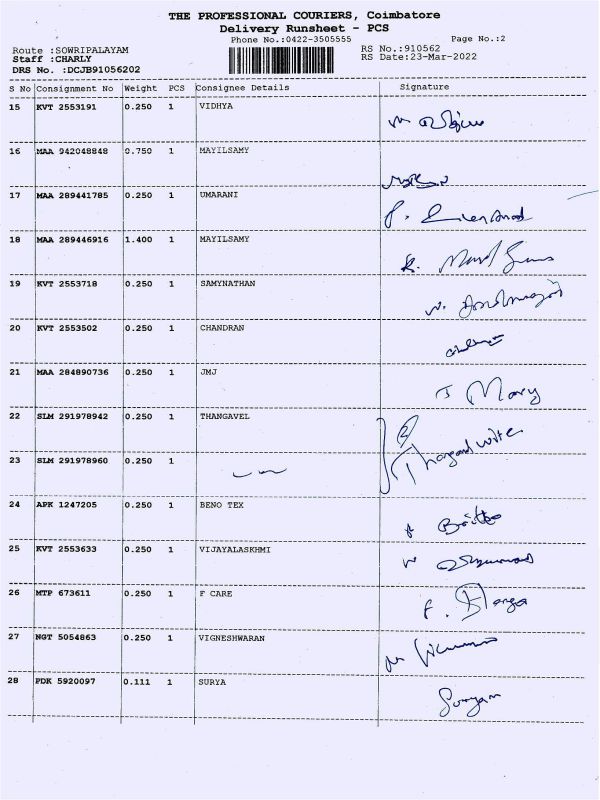 THE PROFESSIONAL COURIERS, Coimbatore
Delivery Runsheet - PCS
Phone No.:0422-3505555
Page No.:2
Route :SOWRIPALAYAM
Staff :CHARLY
DRS No. :DCJB91056202
RS No.:910562
RS Date:23-Mar-2022
S No Consignment No Weight PCS Consignee Details Signature
15 KVT 2553191 0.250 1 VIDHYA
16 MAA 942048848 0.750 1 MAYILSAMY
17 MAA 289441785 0.250 1 UMARANI
18 MAA 289446916 1.400 1 MAYILSAMY
19 KVT 2553718 0.250 1 SAMYNATHAN
20 KVT 2553502 0.250 1 CHANDRAN
21 MAA 284890736 0.250 1 JMJ J Mary
22 SLM 291978942 0.250 1 THANGAVEL
23 SLM 291978960 0.250 1
24 APK 1247205 0.250 1 BENO TEX
25 KVT 2553633 0.250 1 VIJAYALASKHMI
26 MTP 673611 0.250 1 F CARE
27 NGT 5054863 0.250 1 VIGNESHWARAN
28 PDK 5920097 0.111 1 SURYA